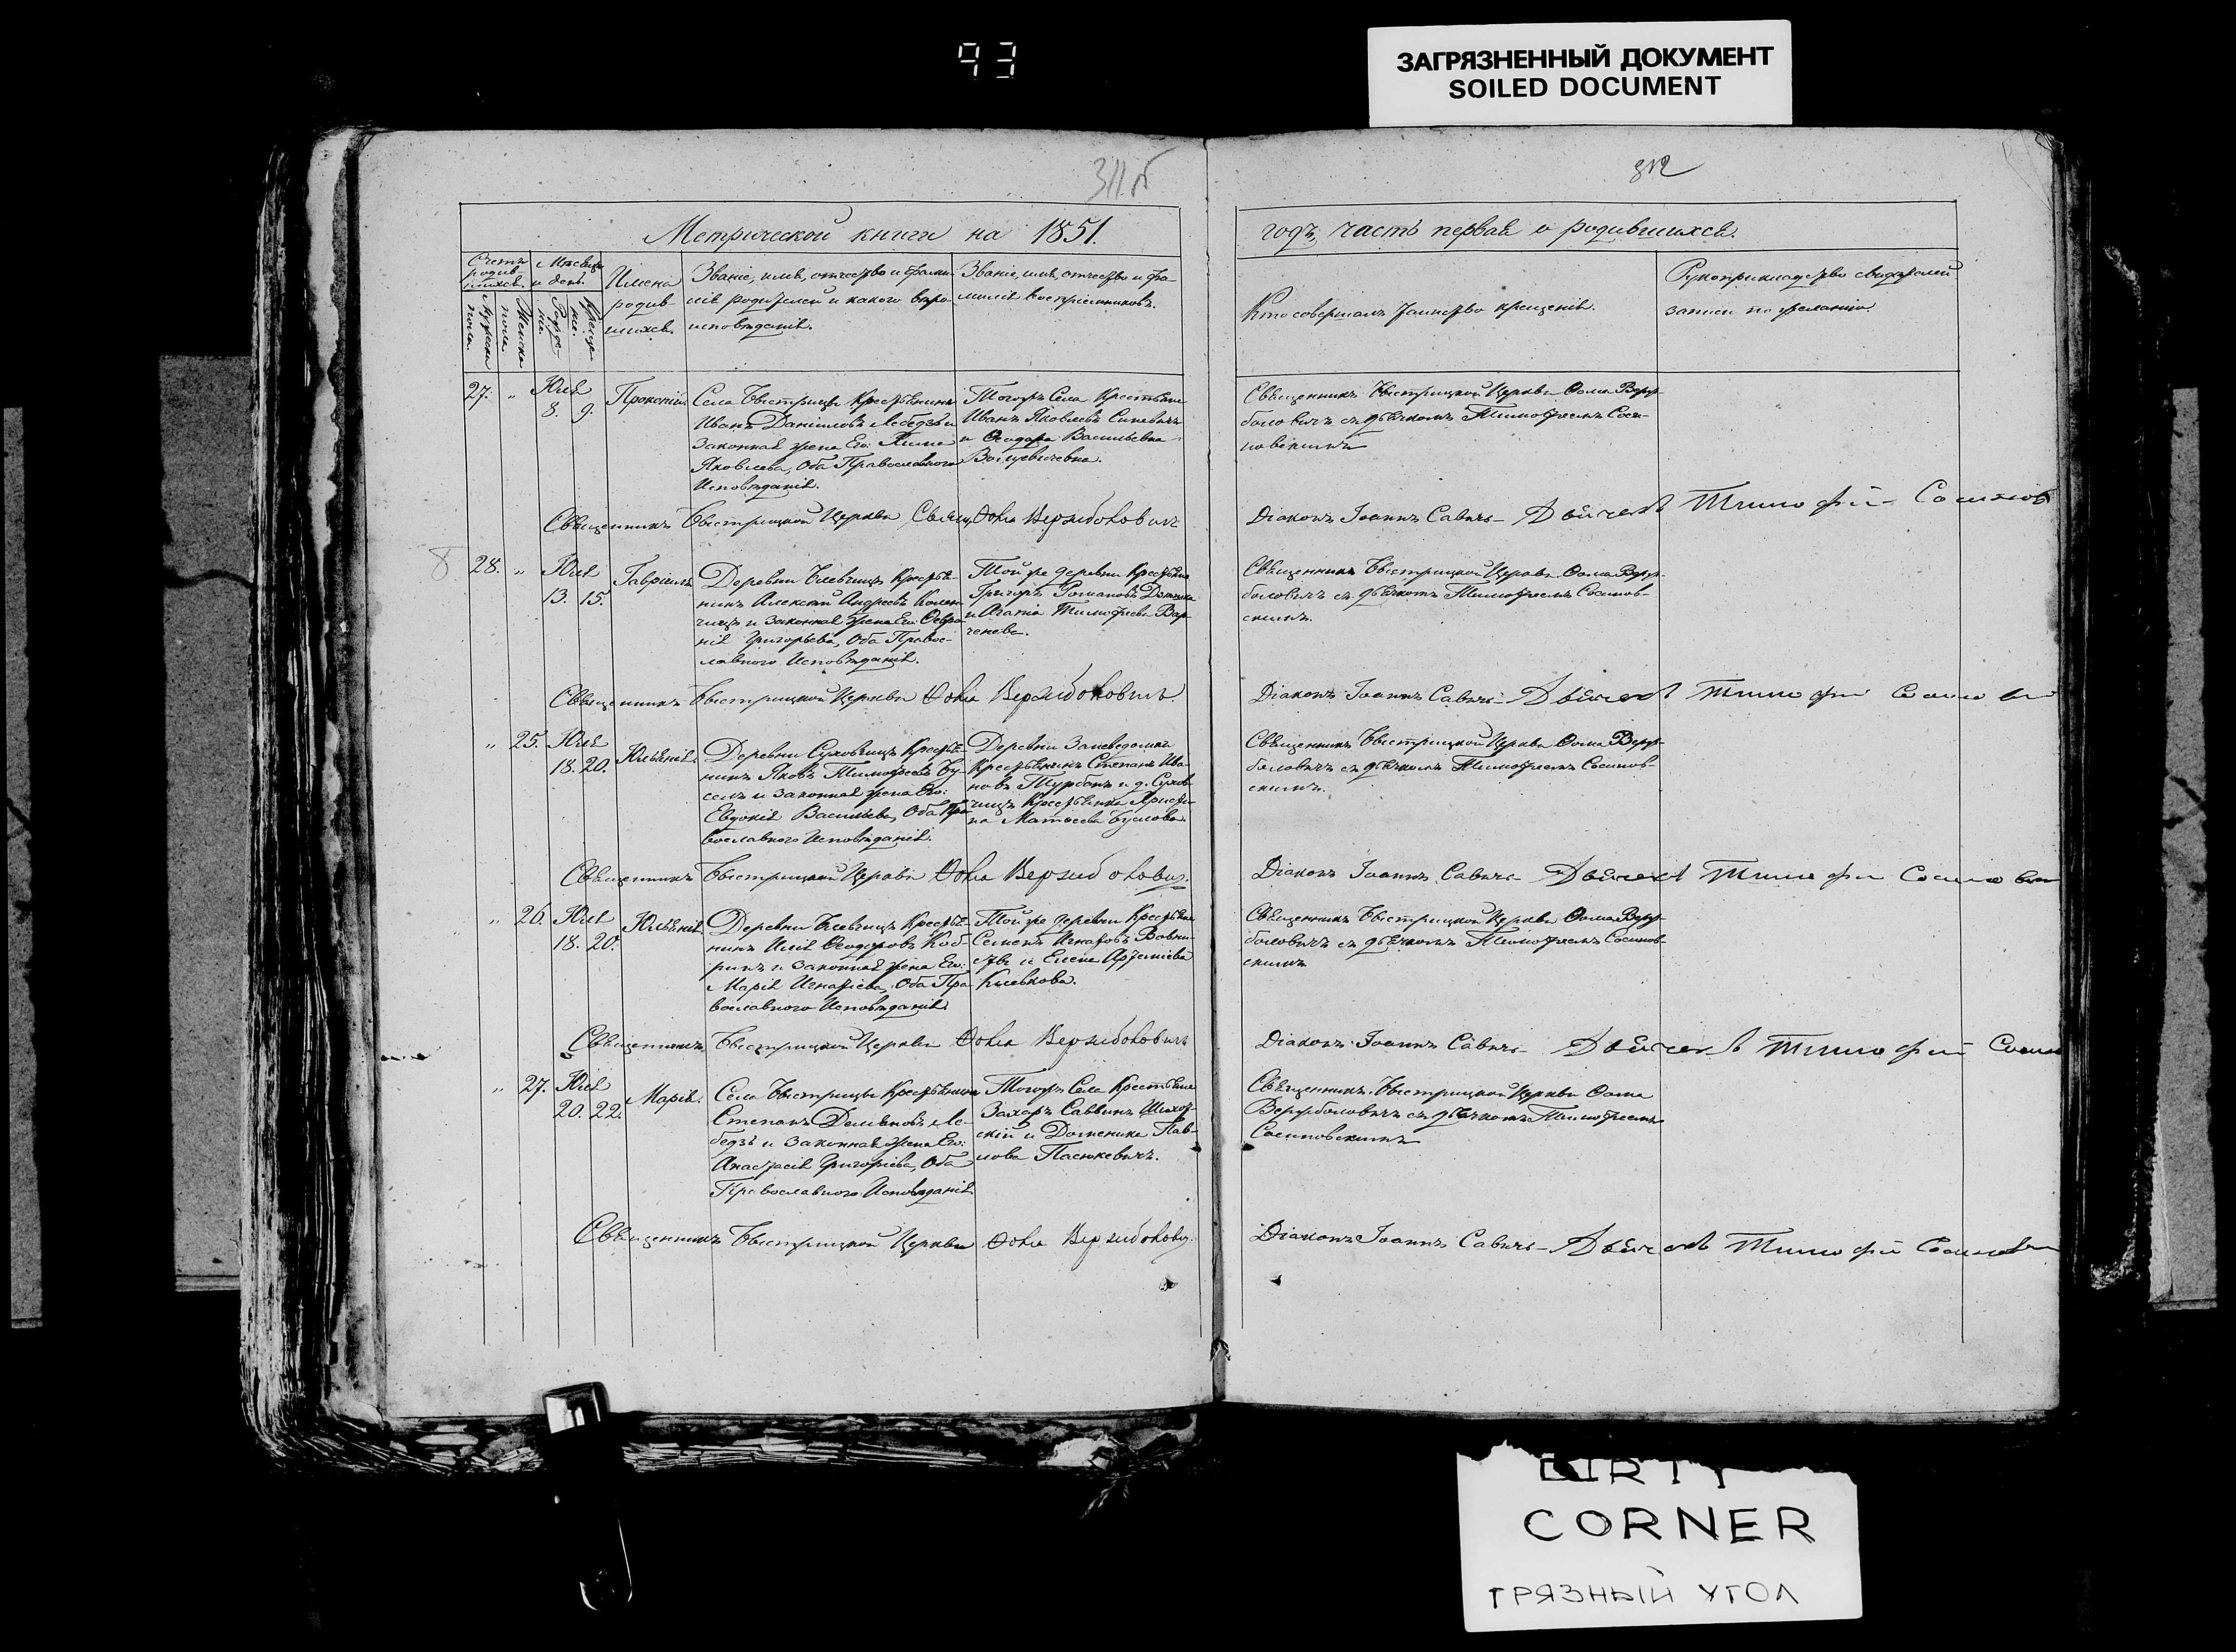 93
ЗАГРЯЗНЕННЫЙ ДОКУМЕНТ
SOILED DOCUMENT
312
Метрической книги на 1851.
годъ, часть первая о родившихся.
Счетъ родив-шихся.
Мужеска пола.
Женска пола.
Мѣсяцъ и день.
Рожде-нія.
Креще-нія.
Имена
родив-
шихся.
Званіе, имя, отчество и фами-
лія родителей и какого вѣро-
исповѣданія.
Званіе, имя, отчество и фа-
милія воспріемниковъ.
Кто совершалъ таинство крещенія.
Рукоприкладство свидѣтелей
записи по желанію.
27. „ Юля 8. 9.
Прокопій
Села Быстрицы Крестьянинъ
Иванъ Даніиловъ Лебедзь и
Законная жена Его:
Яковлева, Оба Православнаго
Исповѣданія.
Тогожъ Села Крестьяне
Иванъ Яковлевъ Синевичъ
и Ѳеодора Васильева
Священникъ Быстрицкой Церкви Ѳома Верж-
боловичъ съ дьячкомъ Тимофеемъ Соси-
новскимъ
Священникъ Быстрицкой Церкви Свящ. Ѳома Вержболовичъ
Діаконъ Іоаннъ Савичъ – Дьячекъ Тимофей Сосинов
28. „ Юля 13. 15.
Гавріилъ
Деревни Клевчицъ Крестья-
нинъ Алексѣй Андреевъ Колен-
чицъ и Законная жена Его: Февро-
нія Григорьева, Оба Право-
славнаго Исповѣданія.
Той же деревни Крестьяне
Григоръ Романовъ
и Агапія Тимофеева Вар-
Священникъ Быстрицкой Церкви Ѳома Верж-
боловичъ съ дьячкомъ Тимофеемъ Сосинов-
скимъ.
Священникъ Быстрицкой Церкви Ѳома Вержболовичъ
Діаконъ Іоаннъ Савичъ – Дьячекъ Тимофей
„ 25. Юля 18. 20.
Юліянія.
Деревни Суховчицъ Крестья-
нинъ Яковъ Тимофеевъ Бу-
селъ и Законная жена Его:
Евдокія Васильева, Оба Пра-
вославнаго Исповѣданія.
Деревни
Крестьянинъ Степанъ Ива-
новъ Турбанъ и д. Сухов-
чицъ Крестьянка Христи-
на Матѳеева Буслова.
Священникъ Быстрицкой Церкви Ѳома Верж-
боловичъ съ дьячкомъ Тимофеемъ Сосинов-
скимъ.
Священникъ Быстрицкой Церкви Ѳома Вержболович.
Діаконъ Іоаннъ Савичъ – Дьячекъ Тимофей
„ 26. Юля 18. 20.
Юліянія.
Деревни Клевчицъ Крестья-
нинъ Илія Ѳеодоровъ Коб-
ринъ и Законная жена Его:
Марія Игнатіева, Оба Пра-
вославнаго Исповѣданія.
Той же деревни Крестьяне
Семенъ Игнатовъ
и Елена Артеміева
Клевкова.
Священникъ Быстрицкой Церкви Ѳома Верж-
боловичъ съ дьячкомъ Тимофеемъ Сосинов-
скимъ
Священникъ Быстрицкой Церкви Ѳома Вержболовичъ
Діаконъ Іоаннъ Савичъ – Дьячекъ Тимофей Сосин
„ 27. Юля 20. 22.
Марія.
Села Быстрицы Крестьянинъ
Степанъ Деміяновъ Ле-
бедзь и Законная жена Его:
Анастасія Григоріева, Оба
Православнаго Исповѣданія
Тогожъ Села Крестьяне
Захаръ Саввинъ
и Доминика Пав-
лова Пасюкевичъ.
Священникъ Быстрицкой Церкви Ѳома
Вержболовичъ съ дьячкомъ Тимофеемъ
Сосиновскимъ
Священникъ Быстрицкой Церкви Ѳома Вержболович.
Діаконъ Іоаннъ Савичъ – Дьячекъ Тимофей
DIRTY
CORNER
ГРЯЗНЫЙ УГОЛ